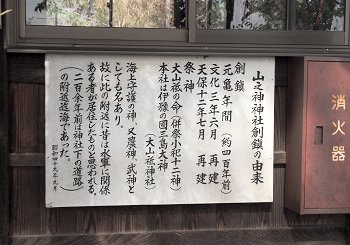 山之神神社創鎮の由来
創鎮
元亀年間(約四百年前)
文化三年六月 再建
天保十二年七月 再建
祭神
大山祇の命(併祭小祀十二神)
本社は伊豫の國三島大神
(大山祇神社)
海上守護の神、又農神、武神と
しても名あり。
故に此の附近に昔は水軍に関係
ある者が居住したものと思われる。
(二百余年前は神社下の道路
の附近迄海であった。)
昭和四十九年九月
消火器